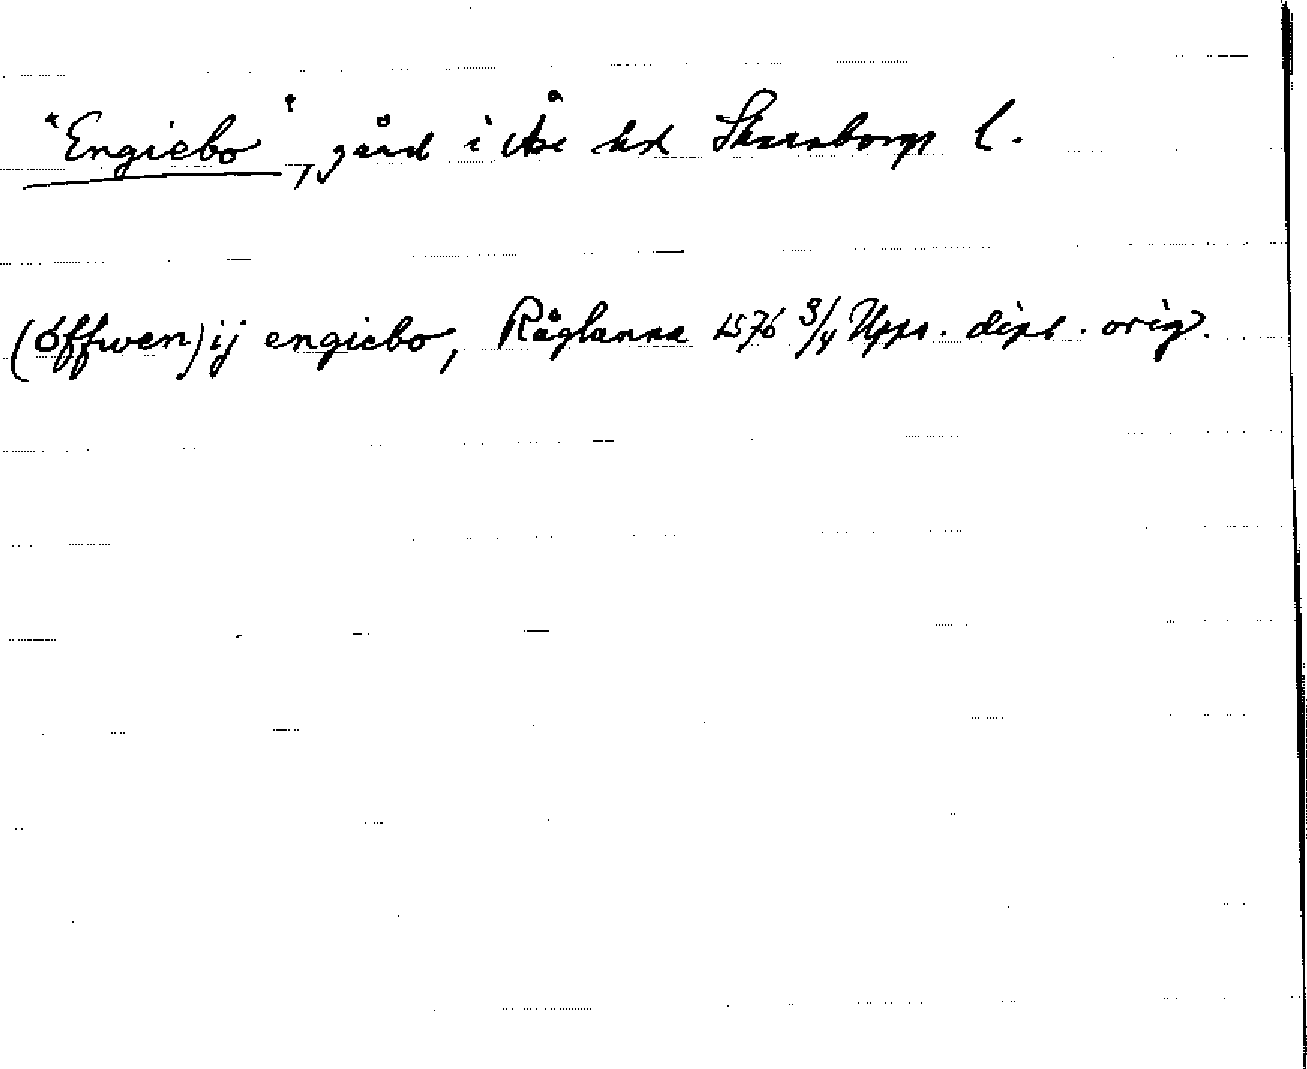 "Engiebo", gård i Åse hd Skaraborgs l.
(öffwen) ij engiebo, Råglanna 1576 3/4 Upps. dipl. orig.